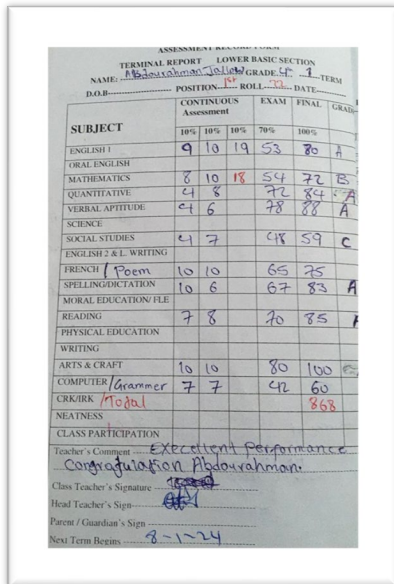 ASSESSMENT RECORD FORM
TERMINAL REPORT LOWER BASIC SECTION
NAME: Abdourahman Jallow GRADE 4th 1 TERM
D.O.B POSITION 1st ROLL 72 DATE
CONTINUOUS Assessment EXAM FINAL GRADE
SUBJECT 10% 10% 10% 70% 100%
ENGLISH 1 9 10 19 53 80 A
ORAL ENGLISH
MATHEMATICS 8 10 18 54 72 B
QUANTITATIVE 4 8 72 84 A
VERBAL APTITUDE 4 6 78 88 A
SCIENCE
SOCIAL STUDIES 4 7 48 59 C
ENGLISH 2 & L. WRITING
FRENCH / Poem 10 10 65 75
SPELLING/DICTATION 10 6 67 83 A
MORAL EDUCATION/ FLE
READING 7 8 70 85 A
PHYSICAL EDUCATION
WRITING
ARTS & CRAFT 10 10 80 100
COMPUTER /Grammer 7 7 42 60
CRK/IRK /Total 868
NEATNESS
CLASS PARTICIPATION
Teacher's Comment Execellent performance
Congratulation Abdourahman.
Class Teacher's Signature
Head Teacher's Sign
Parent / Guardian's Sign
Next Term Begins 8-1-24